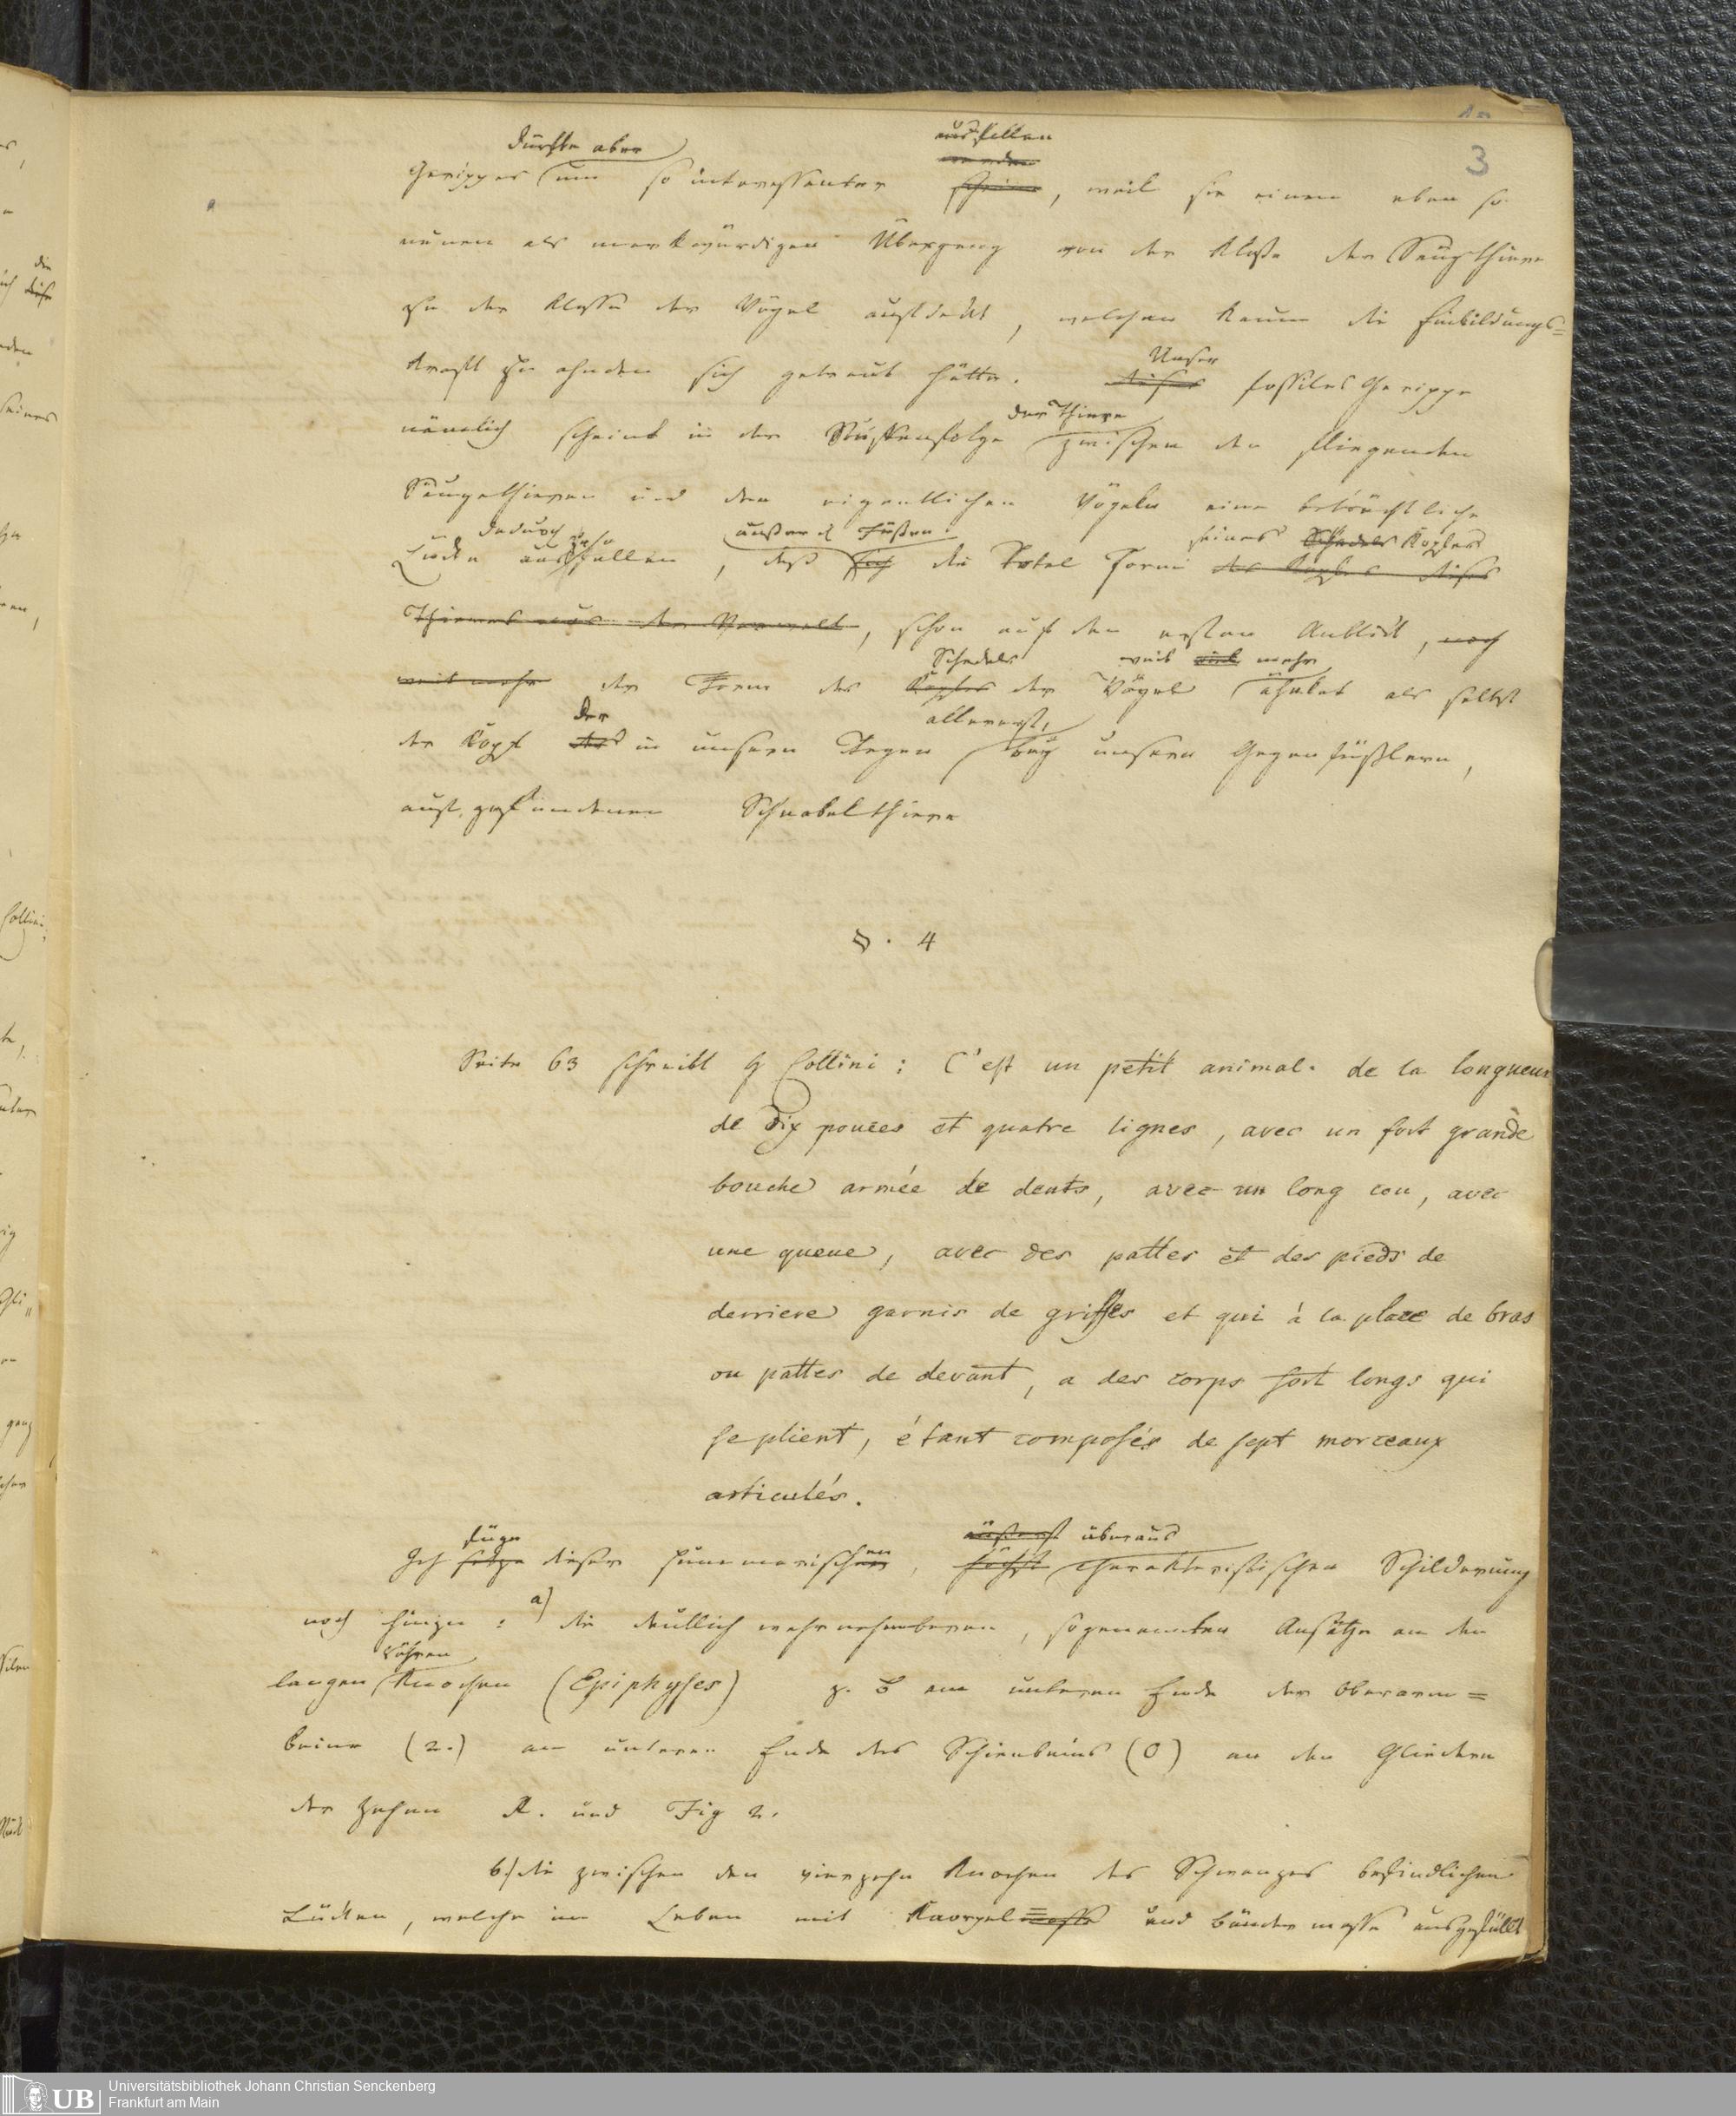 3
dürfte aber ausfallen
werden
Gerippes um so interessanter scheinen, weil sie einen eben so
neuen als merkwürdigen Übergang von der Klaße der Säugthiere
zu der Klasse der Vögel aufdeckt, welchen kaum die Einbildungs=
kraft zu ahnden sich getraut hätte. dieses Unser fossiles Gerippe
nämlich scheint in der Stuffenfolge der Thiere zwischen den fliegenden
Säugethieren und den eigentlichen Vögeln eine beträchtliche
dadurch außer d Füßen seines Schedels Kopfes
Lücke auszufüllen, daß sich die Total Form des Kopfes dieses
Thieres aus der Vorwelt, schon auf den ersten Anblick, noch
Schedels weit viel mehr
weit mehr der Form des Kopfes der Vögel ähnlet als selbst
der allererst,
der Kopf des in unsern Tagen bey unsern Gegenfüßlern,
aufgefundenen Schnabelthiere
§. 4
Seite 63 schreibt H Collini: C'est un petit animal. de la longueur
de dix pouces et quatre lignes, avec un fort grande
bouche armée de dents, avec un long cou, avec
une queue, avec des pattes et des pieds de
derriere garnis de griffes et qui à la place de bras
ou pattes de devant, a des corps fort longs qui
se plient, étant composés de sept morceaux
articulés.
füge äußerst überaus
Ich setze dieser summarischen, höchst charakteristischen Schilderung
noch hinzu: a) die deutlich wahrnehmbaren, sogenannten Ansätze an den
Röhren
langen Knochen (Epiphyses) z. B am unteren Ende der Oberarm=
beine (2.) am unteren Ende des Schienbeins (O) an den Gliedern
der Zehen R. und Fig 2.
b) die zwischen den vierzehn Knochen des Schwanzes befindlichen
Lücken, welche im Leben mit Knorpel=masse und Bändermasse ausgefüllt
Universitätsbibliothek Johann Christian Senckenberg
Frankfurt am Main
UB